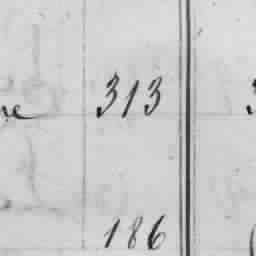 313
186